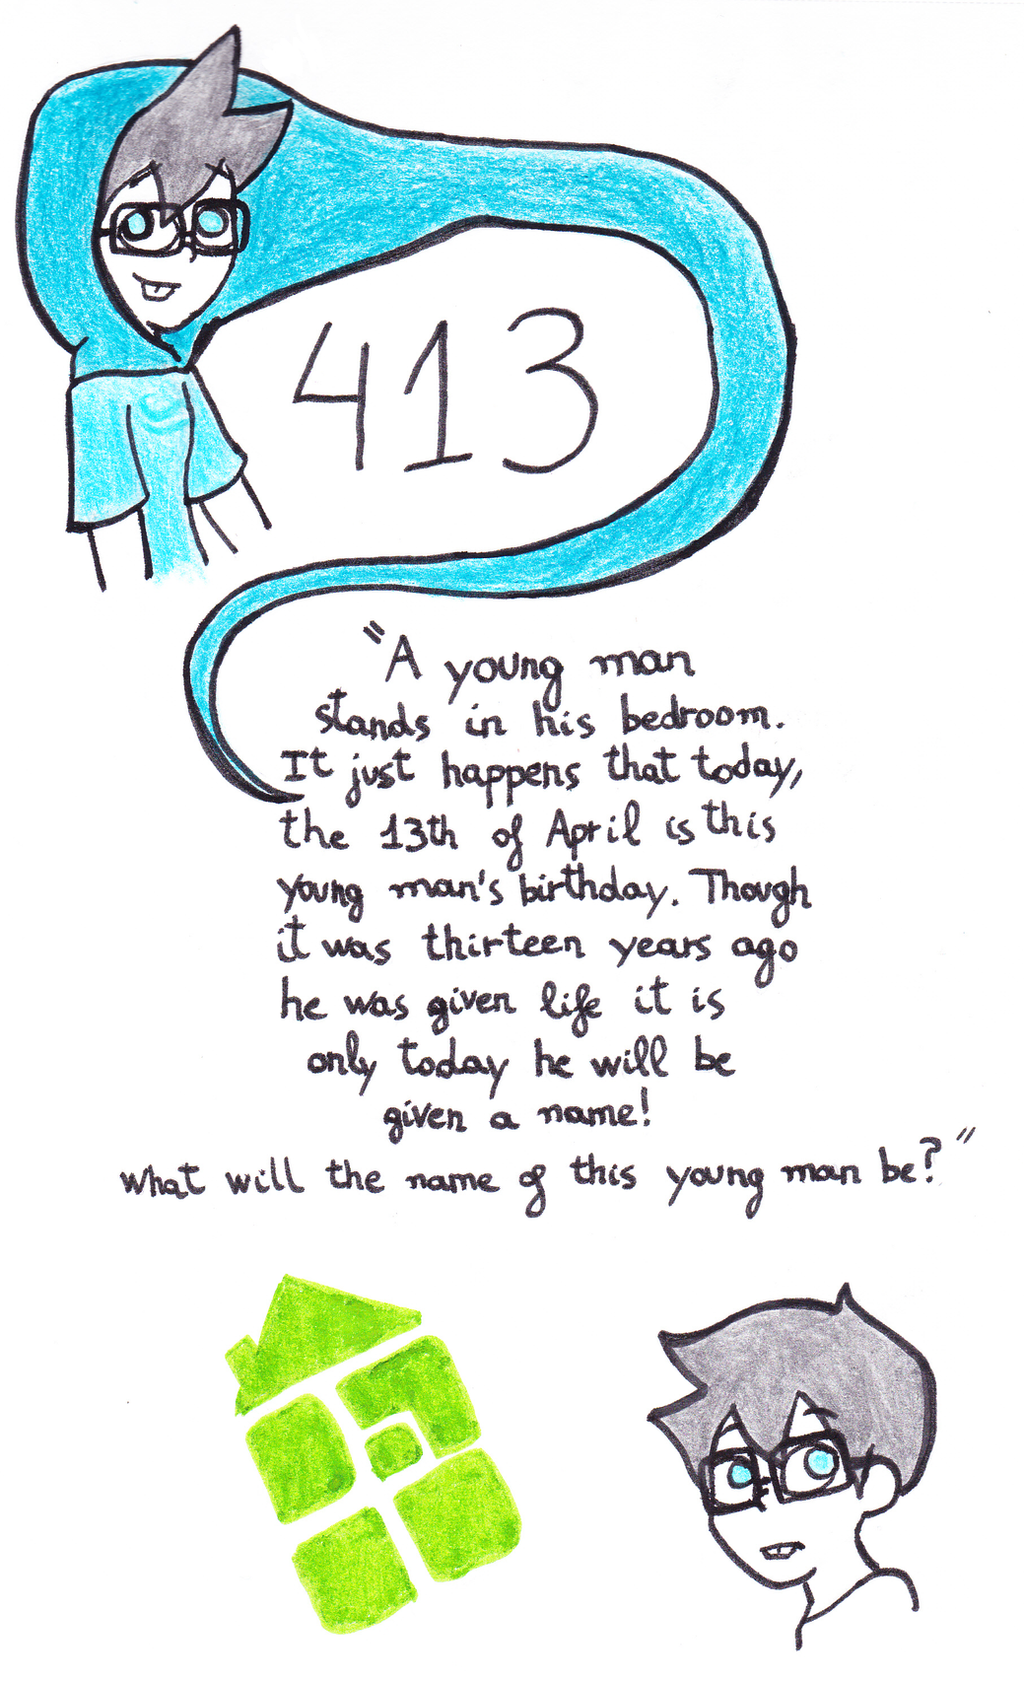 413
"A young man
stands in his bedroom.
It just happens that today,
the 13th of April is this
young man's birthday. Though
it was thirteen years ago
he was given life it is
only today he will be
given a name!
What will the name of this young man be?"